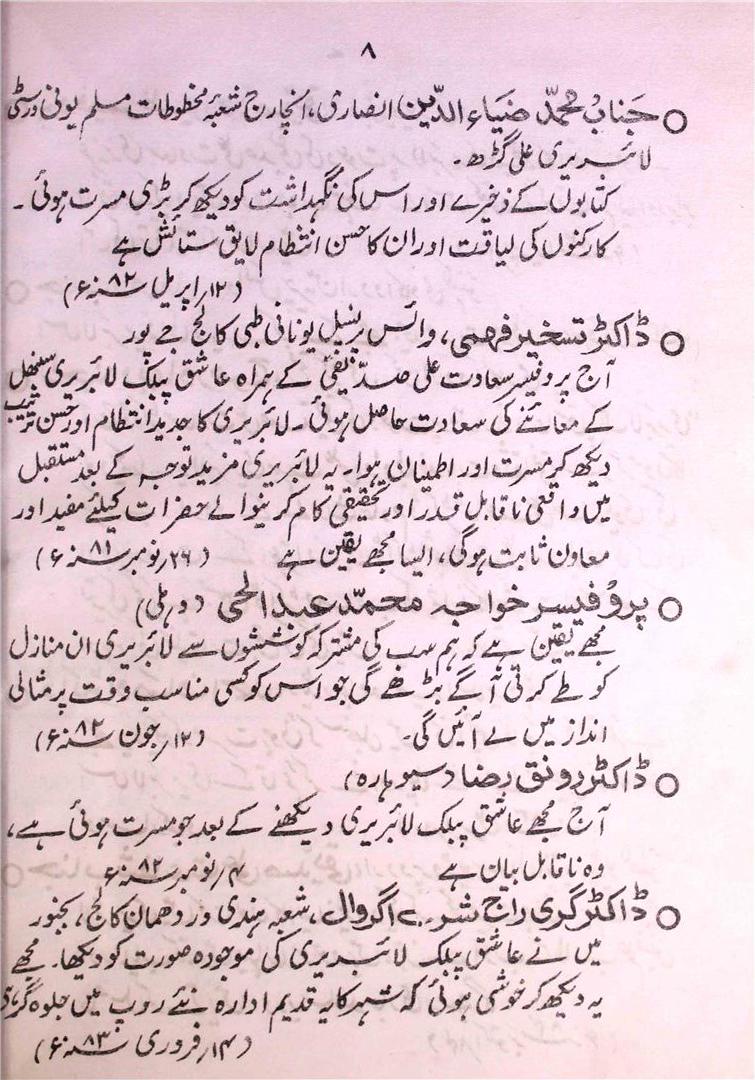 ۸
○ جناب محمّد ضیاء الدّین انصاری، انچارج شعبۂ مخطوطات مسلم یونی ورسٹی
لائبریری علی گڑھ۔
کتابوں کے ذخیرے اور اس کی نگہداشت کو دیکھ کر بڑی مسرت ہوئی۔
کارکنوں کی لیاقت اور ان کا حسن انتظام لایق ستائش ہے
(۱۲ر اپریل سنہ ۸۲ء)
○ ڈاکٹر تسخیر فہمی، وائس پرنسپل یونانی طبی کالج جے پور
آج پروفیسر سعادت علی صدّیقی کے ہمراہ عاشق پبلک لائبریری سنبھل
کے معائنے کی سعادت حاصل ہوئی۔ لائبریری کا جدید انتظام اور حسن ترتیب
دیکھ کر مسرت اور اطمینان ہوا۔ یہ لائبریری مزید توجہ کے بعد مستقبل
میں واقعی ناقابل قدر اور تحقیقی کام کرنیوالے حضرات کیلئے مفید اور
معاون ثابت ہوگی، ایسا مجھے یقین ہے (۲۶ر نومبر سنہ ۸۱ء)
○ پروفیسر خواجہ محمّد عبدالحی (دہلی)
مجھے یقین ہے کہ ہم سب کی مشترکہ کوششوں سے لائبریری ان منازل
کو طے کرتی آگے بڑھے گی جو اس کو کسی مناسب وقت پر مثالی
انداز میں لے آئیں گی۔ (۱۲ر جون سنہ ۸۲ء)
○ ڈاکٹر رونق رضا (سیوہارہ)
آج مجھے عاشق پبلک لائبریری دیکھنے کے بعد جو مسرت ہوئی ہے،
وہ ناقابل بیان ہے ۴ر نومبر سنہ ۸۲ء
○ ڈاکٹر گری راج شرن اگروال، شعبہ ہندی وردھمان کالج، بجنور
میں نے عاشق پبلک لائبریری کی موجودہ صورت کو دیکھا۔ مجھے
یہ دیکھ کر خوشی ہوئی کہ شہر کا یہ قدیم ادارہ نئے روپ میں جلوہ گر ہے
(۱۴ر فروری سنہ ۸۳ء)